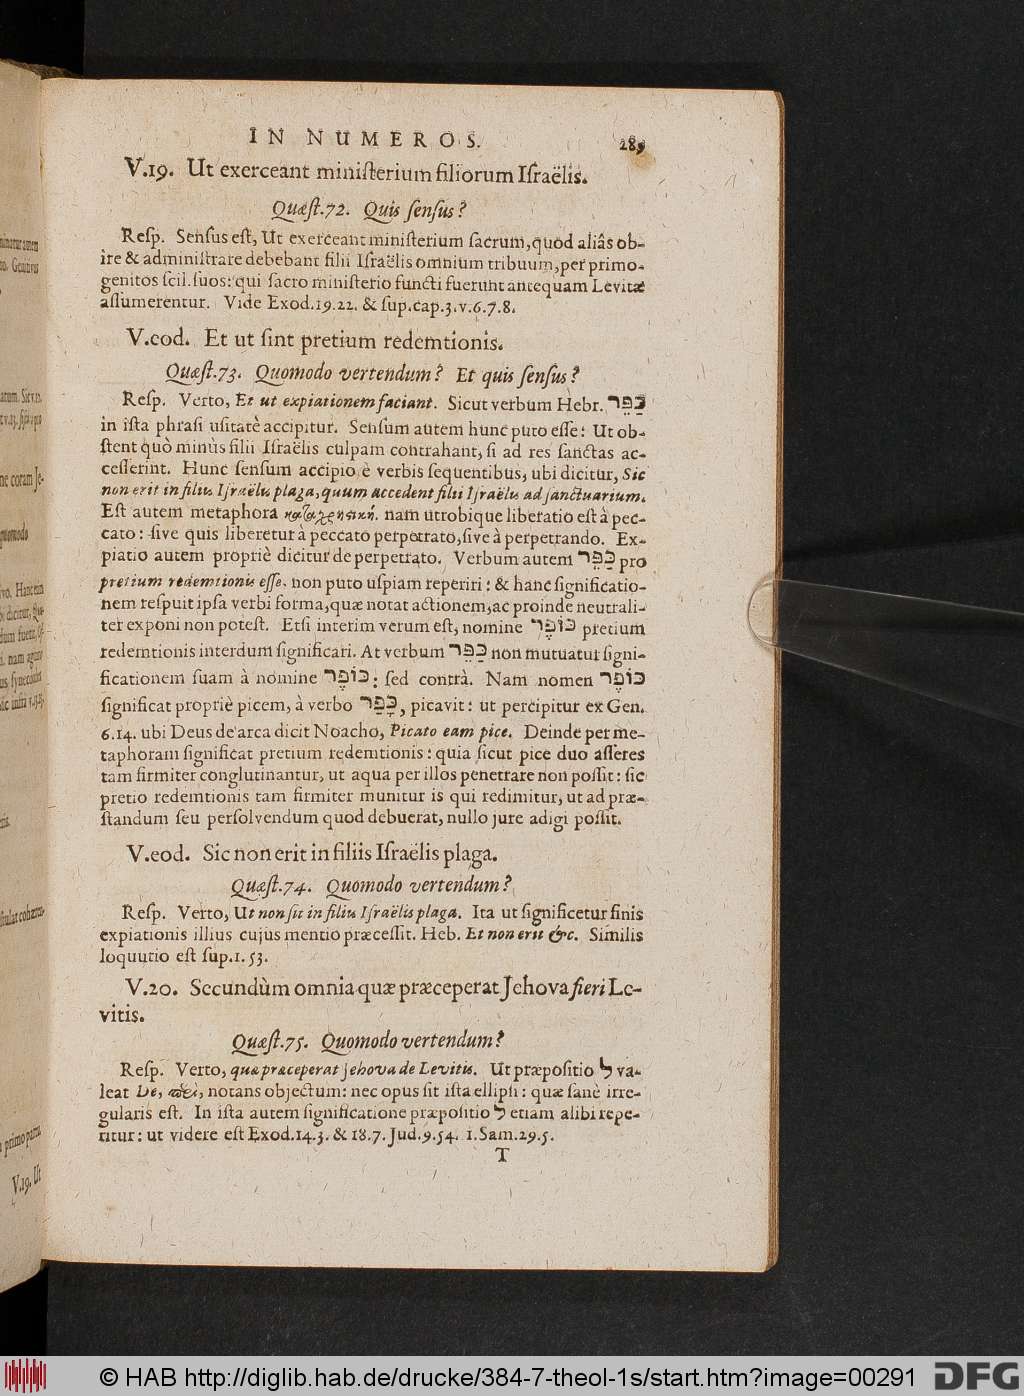 IN NUMEROS. 289
V.19. Ut exerceant miniſterium filiorum Iſraëlis.
Quæſt.72. Quis ſenſus?
Reſp. Senſus eſt, Ut exerceant miniſterium ſacrum, quod aliâs ob-
ire & adminiſtrare debebant filii Iſraëlis omnium tribuum, per primo-
genitos ſcil. ſuos: qui ſacro miniſterio functi fuerunt antequam Levitæ
aſſumerentur. Vide Exod.19.22. & ſup.cap.3.v.6.7.8.
V.eod. Et ut ſint pretium redemtionis.
Quæſt.73. Quomodo vertendum? Et quis ſenſus?
Reſp. Verto, Et ut expiationem faciant. Sicut verbum Hebr. כַּפֵּר
in iſta phraſi uſitatè accipitur. Senſum autem hunc puto eſſe: Ut ob-
ſtent quò minùs filii Iſraëlis culpam contrahant, ſi ad res ſanctas ac-
ceſſerint. Hunc ſenſum accipio è verbis ſequentibus, ubi dicitur, Sic
non erit in filiis Iſraëlis plaga, quum accedent filii Iſraëlis ad ſanctuarium.
Eſt autem metaphora καταχρηστική. nam utrobique liberatio eſt à pec-
cato: ſive quis liberetur à peccato perpetrato, ſive à perpetrando. Ex-
piatio autem propriè dicitur de perpetrato. Verbum autem כַּפֵּר pro
pretium redemtionis eſſe, non puto uſpiam reperiri: & hanc ſignificatio-
nem reſpuit ipſa verbi forma, quæ notat actionem, ac proinde neutrali-
ter exponi non poteſt. Etſi interim verum eſt, nomine כּוֹפֶר pretium
redemtionis interdum ſignificari. At verbum כַּפֵּר non mutuatur ſigni-
ficationem ſuam à nomine כּוֹפֶר: ſed contrà. Nam nomen כּוֹפֶר
ſignificat propriè picem, à verbo כָּפַר, picavit: ut percipitur ex Gen.
6.14. ubi Deus de arca dicit Noacho, Picato eam pice. Deinde per me-
taphoram ſignificat pretium redemtionis: quia ſicut pice duo aſſeres
tam firmiter conglutinantur, ut aqua per illos penetrare non poſſit: ſic
pretio redemtionis tam firmiter munitur is qui redimitur, ut ad præ-
ſtandum ſeu perſolvendum quod debuerat, nullo jure adigi poſſit.
V.eod. Sic non erit in filiis Iſraëlis plaga.
Quæſt.74. Quomodo vertendum?
Reſp. Verto, Ut non ſit in filiis Iſraëlis plaga. Ita ut ſignificetur finis
expiationis illius cujus mentio præceſſit. Heb. Et non erit &c. Similis
loquutio eſt ſup.1.53.
V.20. Secundùm omnia quæ præceperat Jehova fieri Le-
vitis.
Quæſt.75. Quomodo vertendum?
Reſp. Verto, quæ præceperat Jehova de Levitis. Ut præpoſitio ל va-
leat De, περὶ, notans objectum: nec opus ſit iſta ellipſi: quæ ſanè irre-
gularis eſt. In iſta autem ſignificatione præpoſitio ל etiam alibi repe-
ritur: ut videre eſt Exod.14.3. & 18.7. Jud.9.54. 1.Sam.29.5.
T
© HAB http://diglib.hab.de/drucke/384-7-theol-1s/start.htm?image=00291
DFG